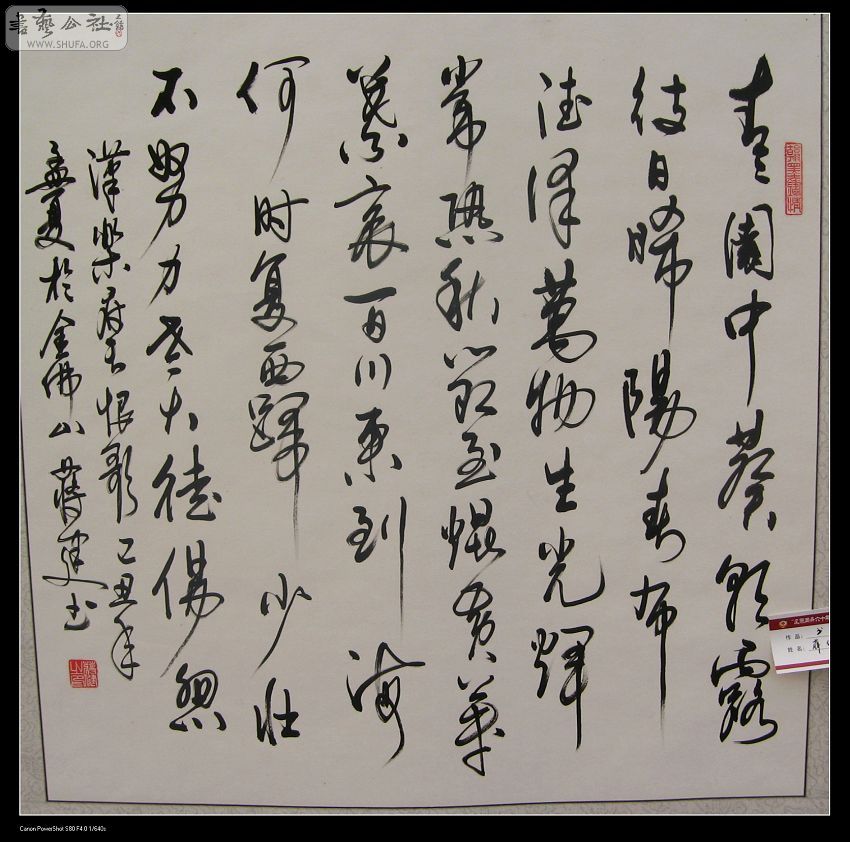 書藝公社
WWW.SHUFA.ORG
青〻園中葵朝露
待日晞陽春布
德澤萬物生光輝
常恐秋節至焜黃華
葉衰百川東到海
何时复西歸少壯
不努力老大徒傷悲
漢樂府长恨歌己丑年
孟夏於金佛山蔣建书
作品:
姓名:
Canon PowerShot S80 F4.0 1/640s